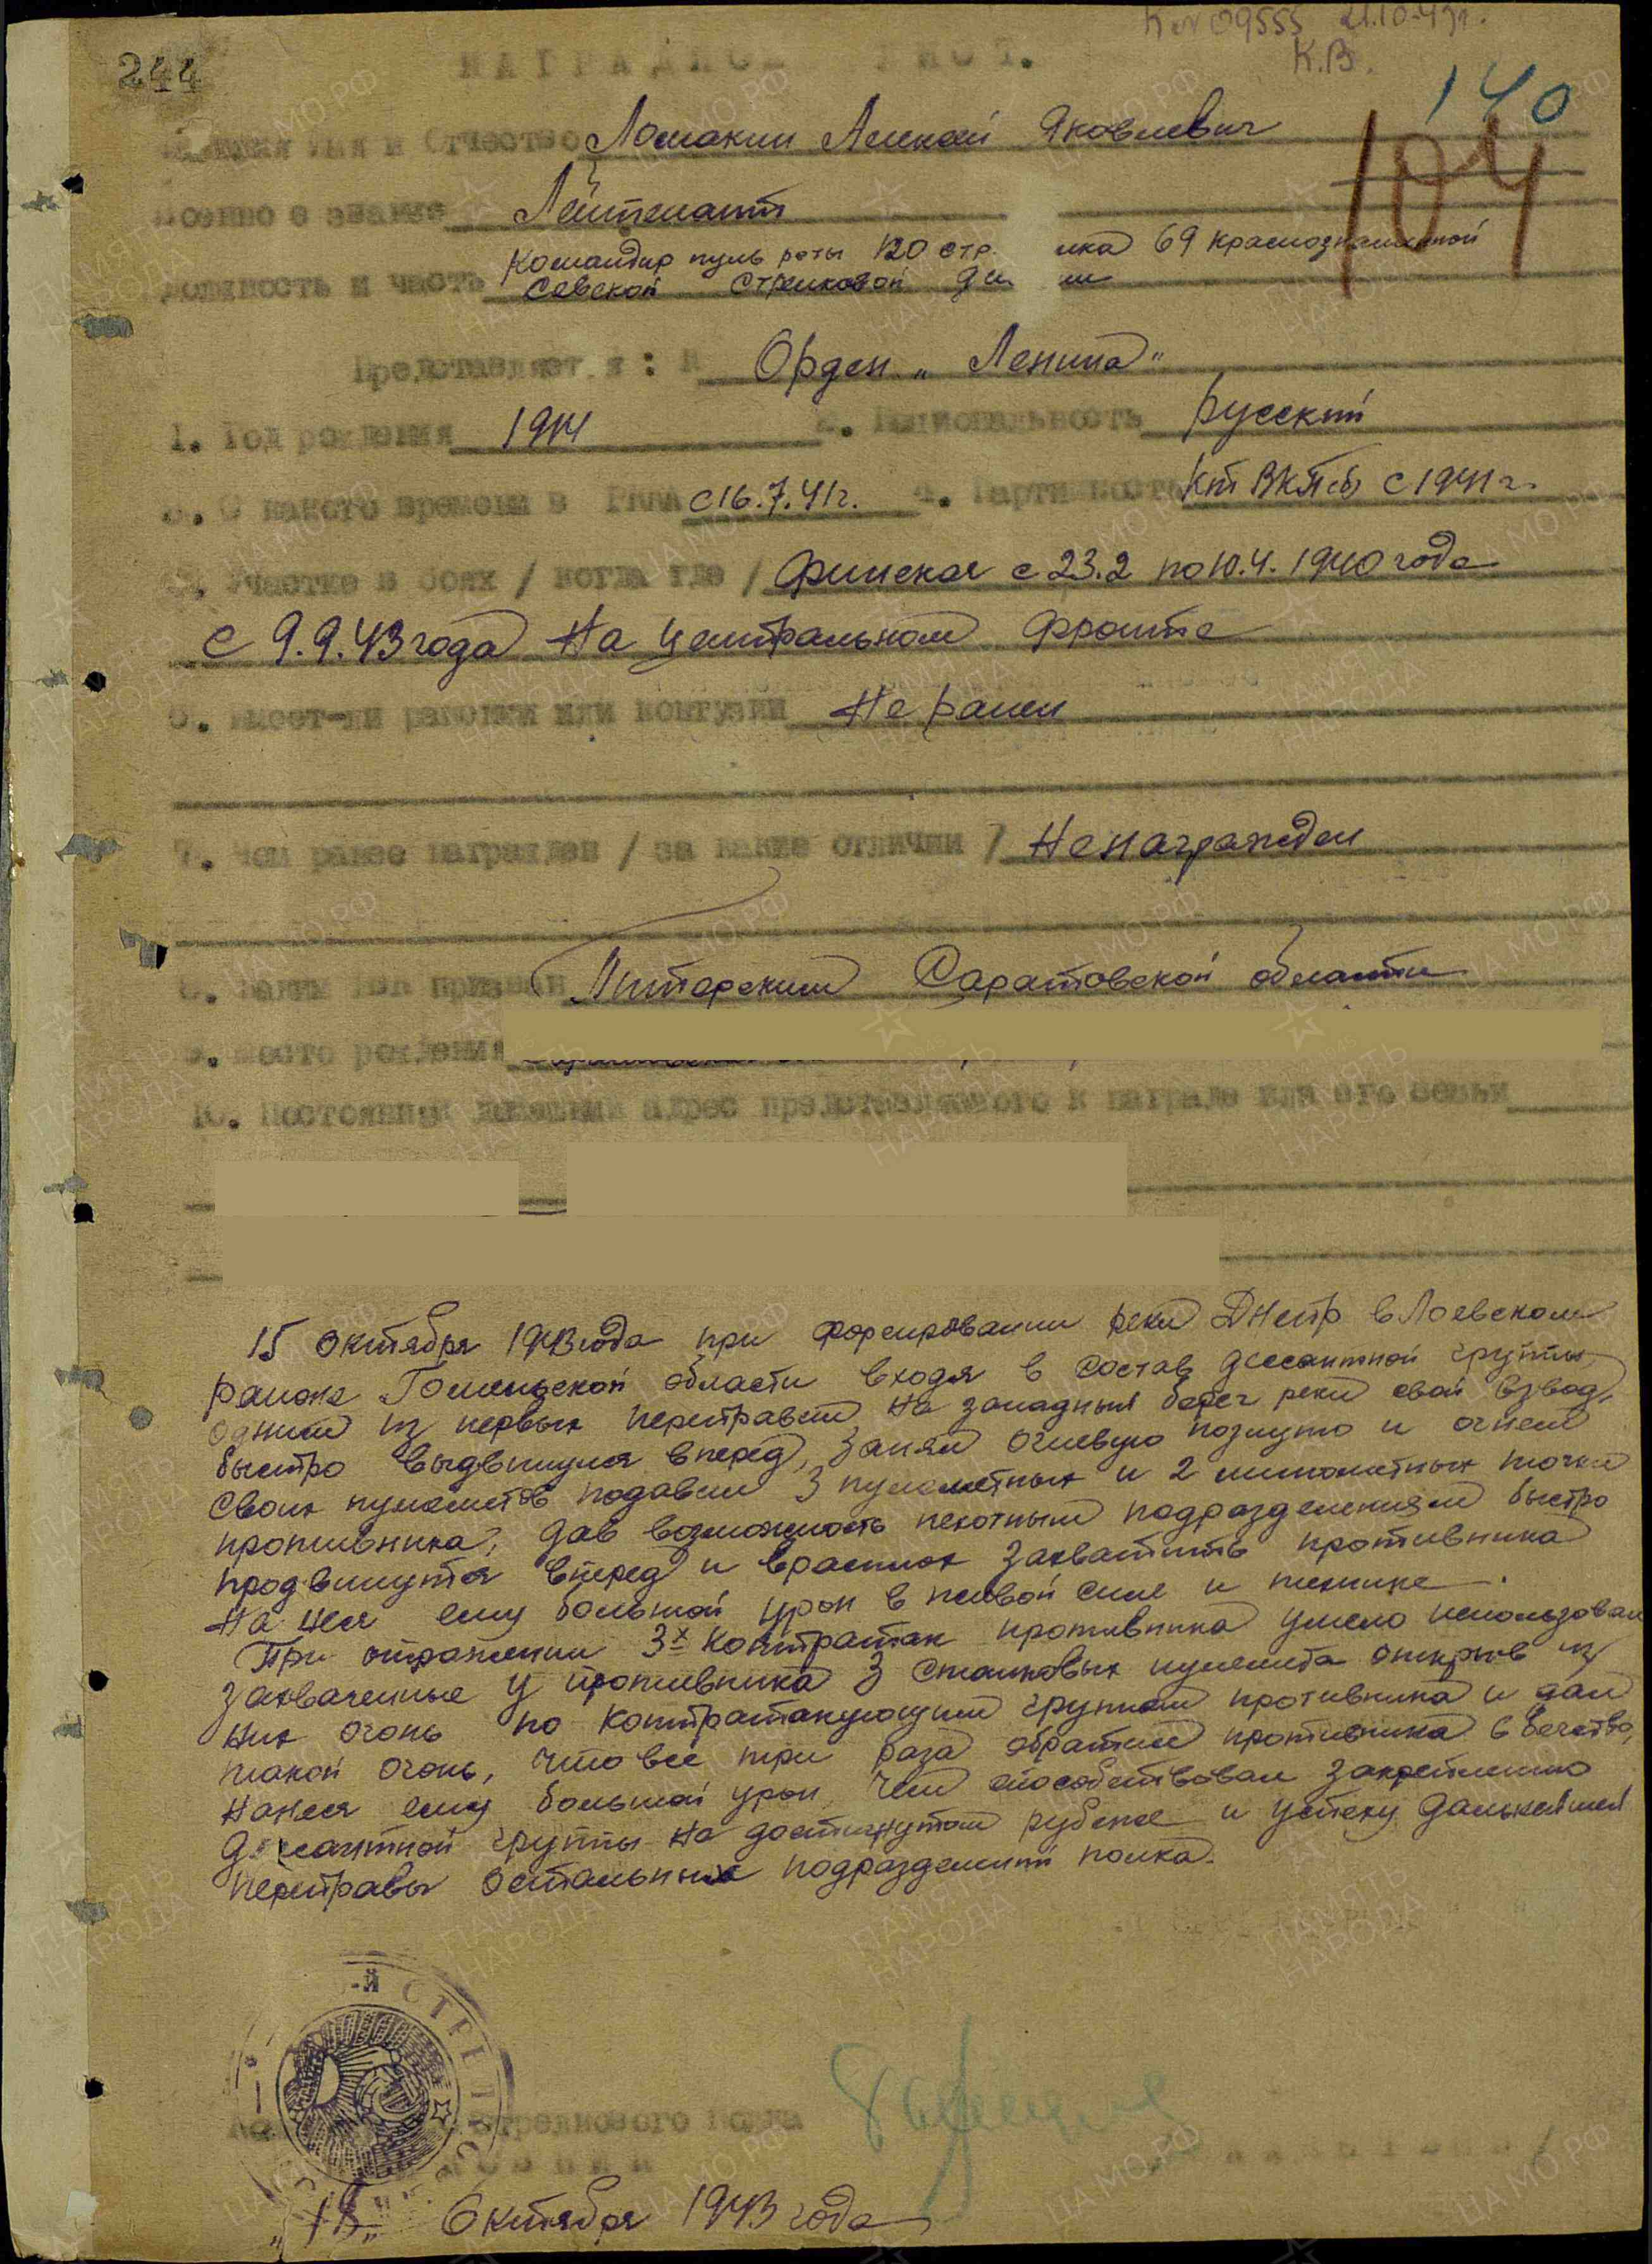 244
НАГРАДНОЙ ЛИСТ.
21.10.43г.
К.В.
140
104
Фамилия Имя и Отчество Ломакин Алексей Яковлевич
Военное звание Лейтенант
Должность и часть Командир пуль роты 120 стр. лка 69 краснознаменной
Севской Стрелковой ди ии
Представляется: к Орден „Ленина“
1. Год рождения 1914 2. Национальность русский
3. С какого времени в РККА с 16.7.41г. 4. Партийность кт ВКП(б) с 1941г.
5. Участие в боях / когда где / Финская с 23.2 по 10.4.1940 года
с 9.9.43 года На Центральном Фронте
6. Имеет-ли ранения или контузии Не ранен
7. Чем ранее награжден / за какие отличия / Не награжден
8. Каким РВК призван Питерским Саратовской области
9. Место рождения
10. Постоянный домашний адрес представляемого к награде или его семьи
15 Октября 1943 года при форсировании реки Днепр в Лоевском
районе Гомельской области входя в состав десантной группы,
одним из первых переправил на западный берег реки свой взвод,
быстро выдвинулся вперед, занял огневую позицию и огнем
своих пулеметов подавил 3 пулеметных и 2 минометных точки
противника, дав возможность пехотным подразделениям быстро
продвинутся вперед и врасплох захватить противника
нанеся ему большой урон в живой силе и технике.
При отражении 3х контратак противника умело использовал
захваченные у противника 3 станковых пулемета открыв из
них огонь по контратакующим группам противника и дал
такой огонь, что все три раза обратил противника в бегство,
нанеся ему большой урон, чем способствовал закреплению
десантной группы на достигнутом рубеже и успеху дальнейшей
переправы остальных подразделений полка.
-Й СТРЕЛ
стрелкового полка
18 Октября 1943 года
ПАМЯТЬ НАРОДА
ЦАМО РФ